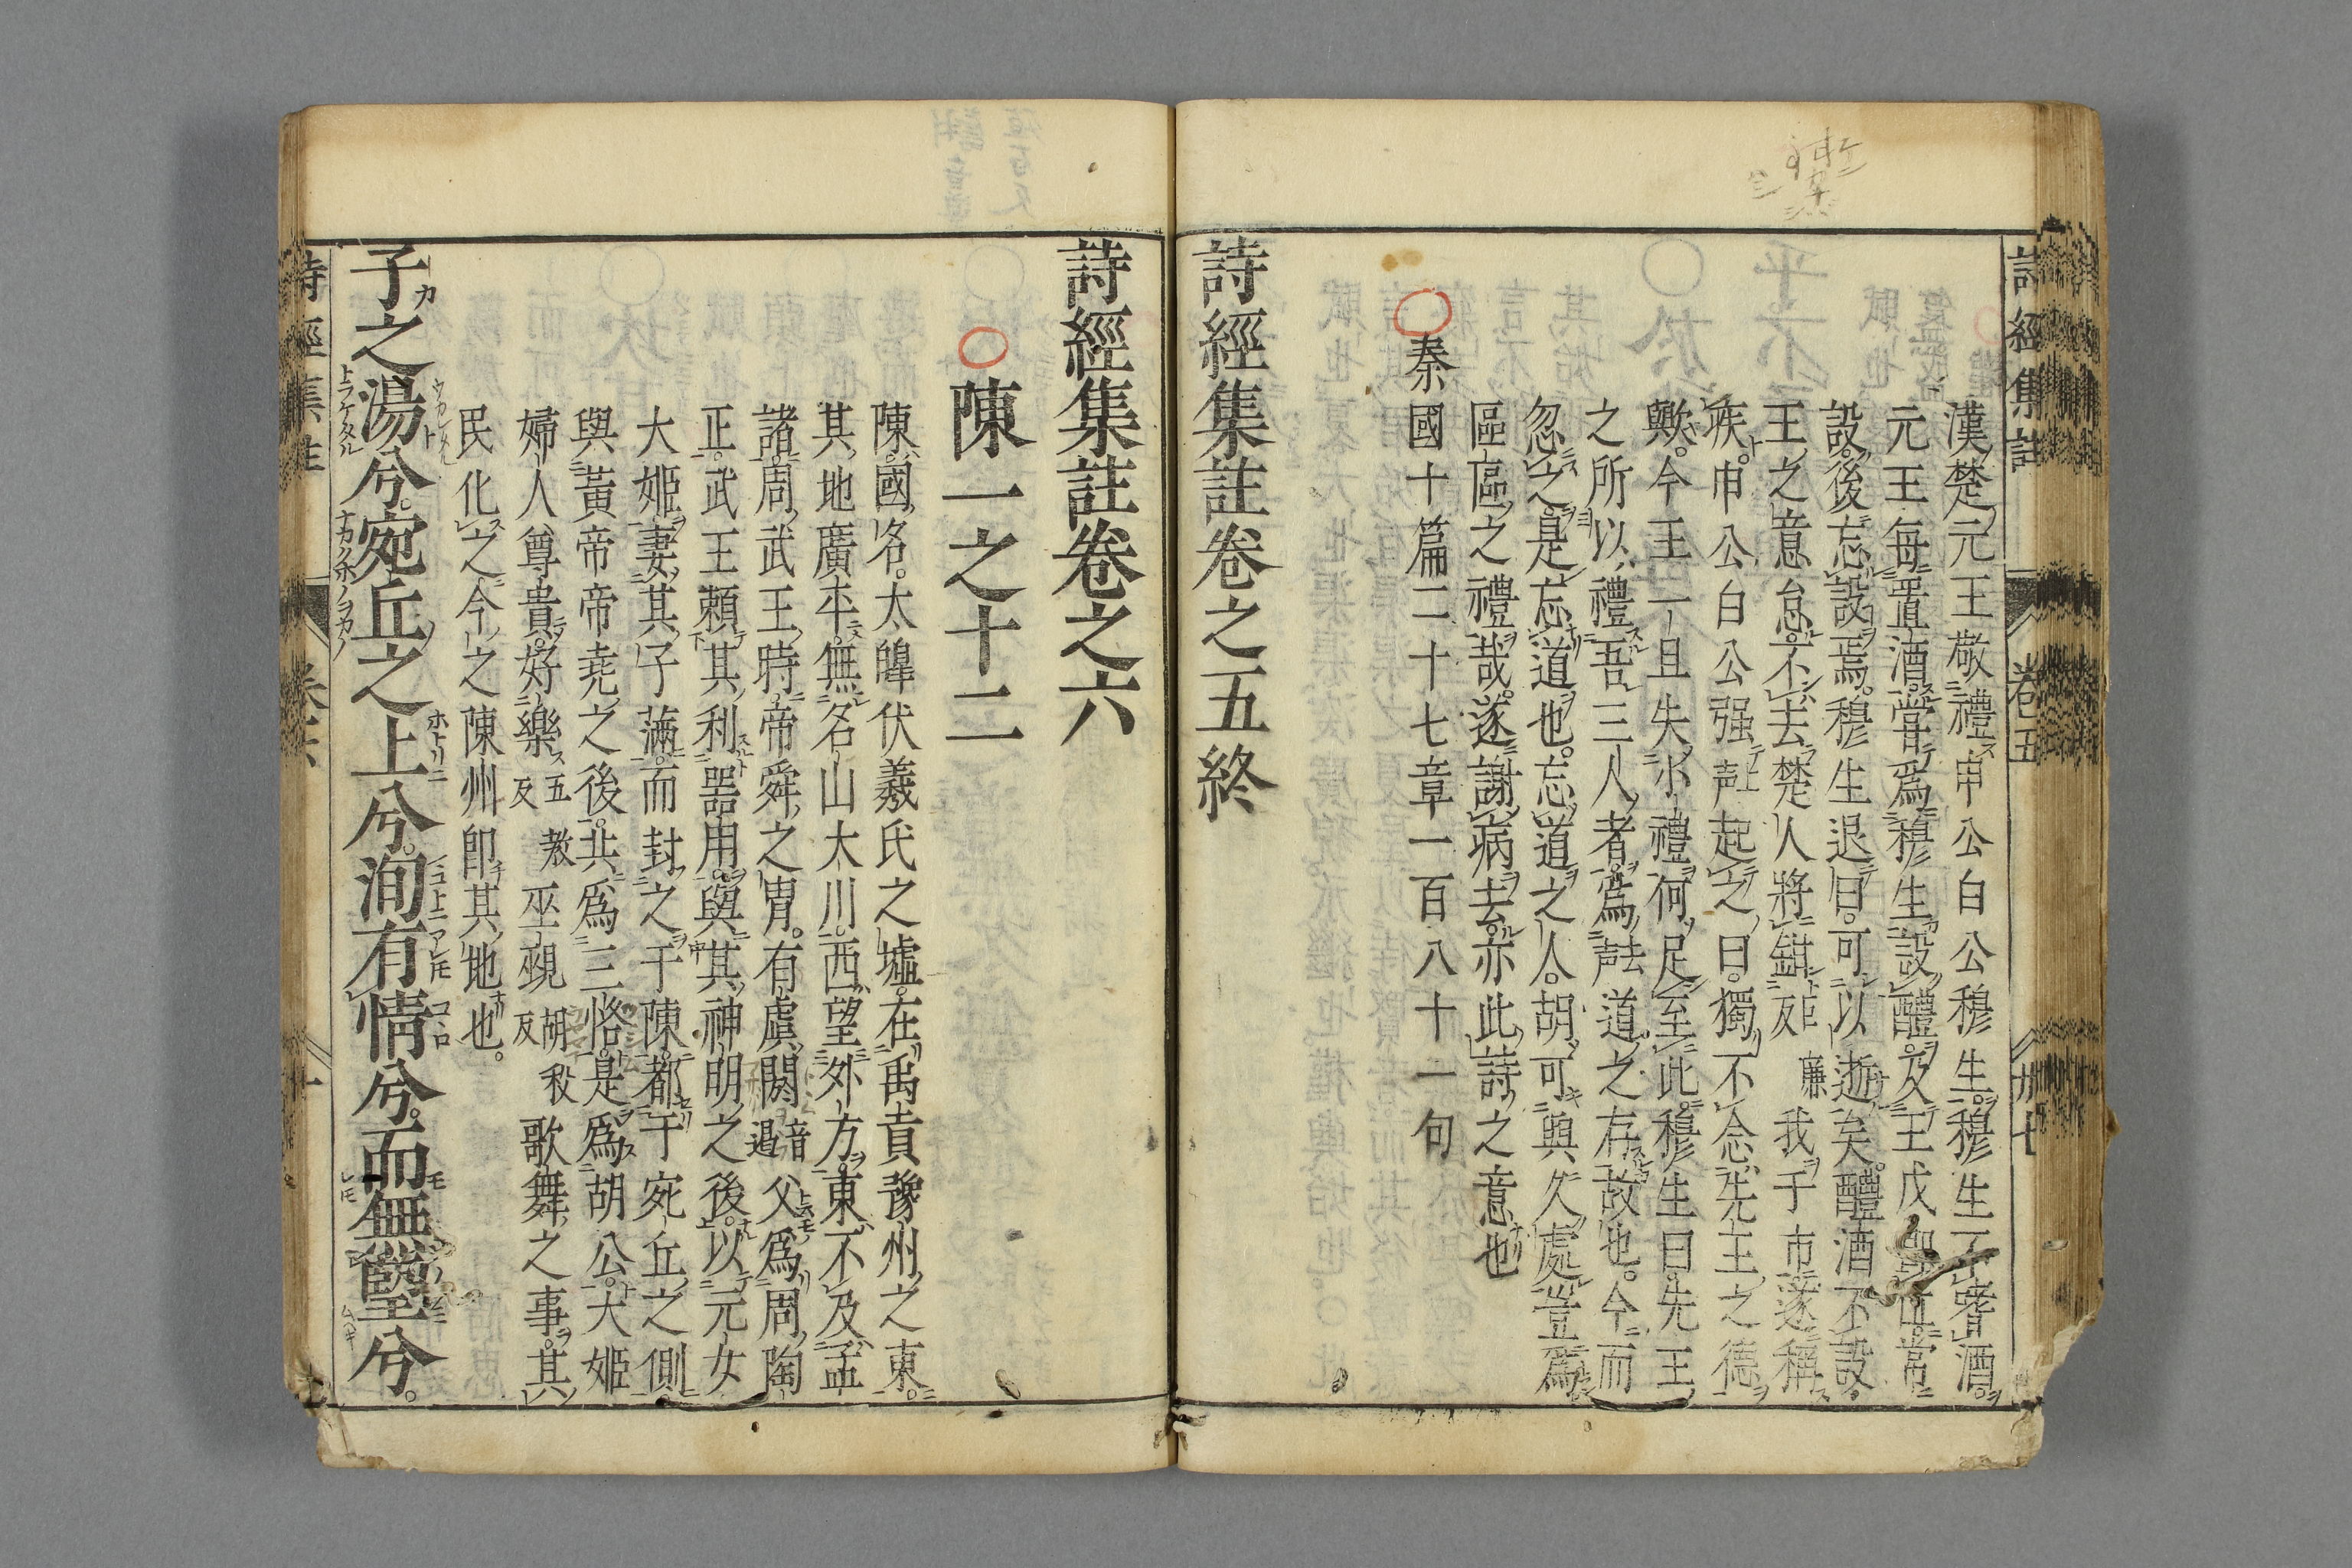 漢楚元王敬禮申公白公穆生穆生不嗜酒
元王每置酒嘗爲穆生設醴及王戊卽位常
設後忘設焉穆生退曰可以逝矣醴酒不設
王之意怠不去楚人將鉗巨廉反我于市遂稱
疾申公白公强上声起之曰獨不念先王之德
歟今王一旦失小禮何足至此穆生曰先王
之所以禮吾三人者爲去声道之存故也今而
忽之是忘道也忘道之人胡可與久處豈爲
區區之禮哉遂謝病去亦此詩之意也
秦國十篇二十七章一百八十一句
詩經集註卷之五終
詩經集註卷之六
陳一之十二
陳國名太皥伏羲氏之墟在禹貢豫州之東
其地廣平無名山大川西望外方東不及孟
諸周武王時帝舜之胄有虞閼音遏父爲周陶
正武王賴其利器用與其神明之後以元女
大姬妻其子滿而封之于陳都于宛丘之側
與黃帝帝尭之後共爲三恪是爲胡公大姬
婦人尊貴好樂五教反巫覡胡狄反歌舞之事其
民化之今之陳州卽其地也
子之湯兮宛丘之上兮洵有情兮而無望兮
詩經集註 卷五
詩經集註 卷六